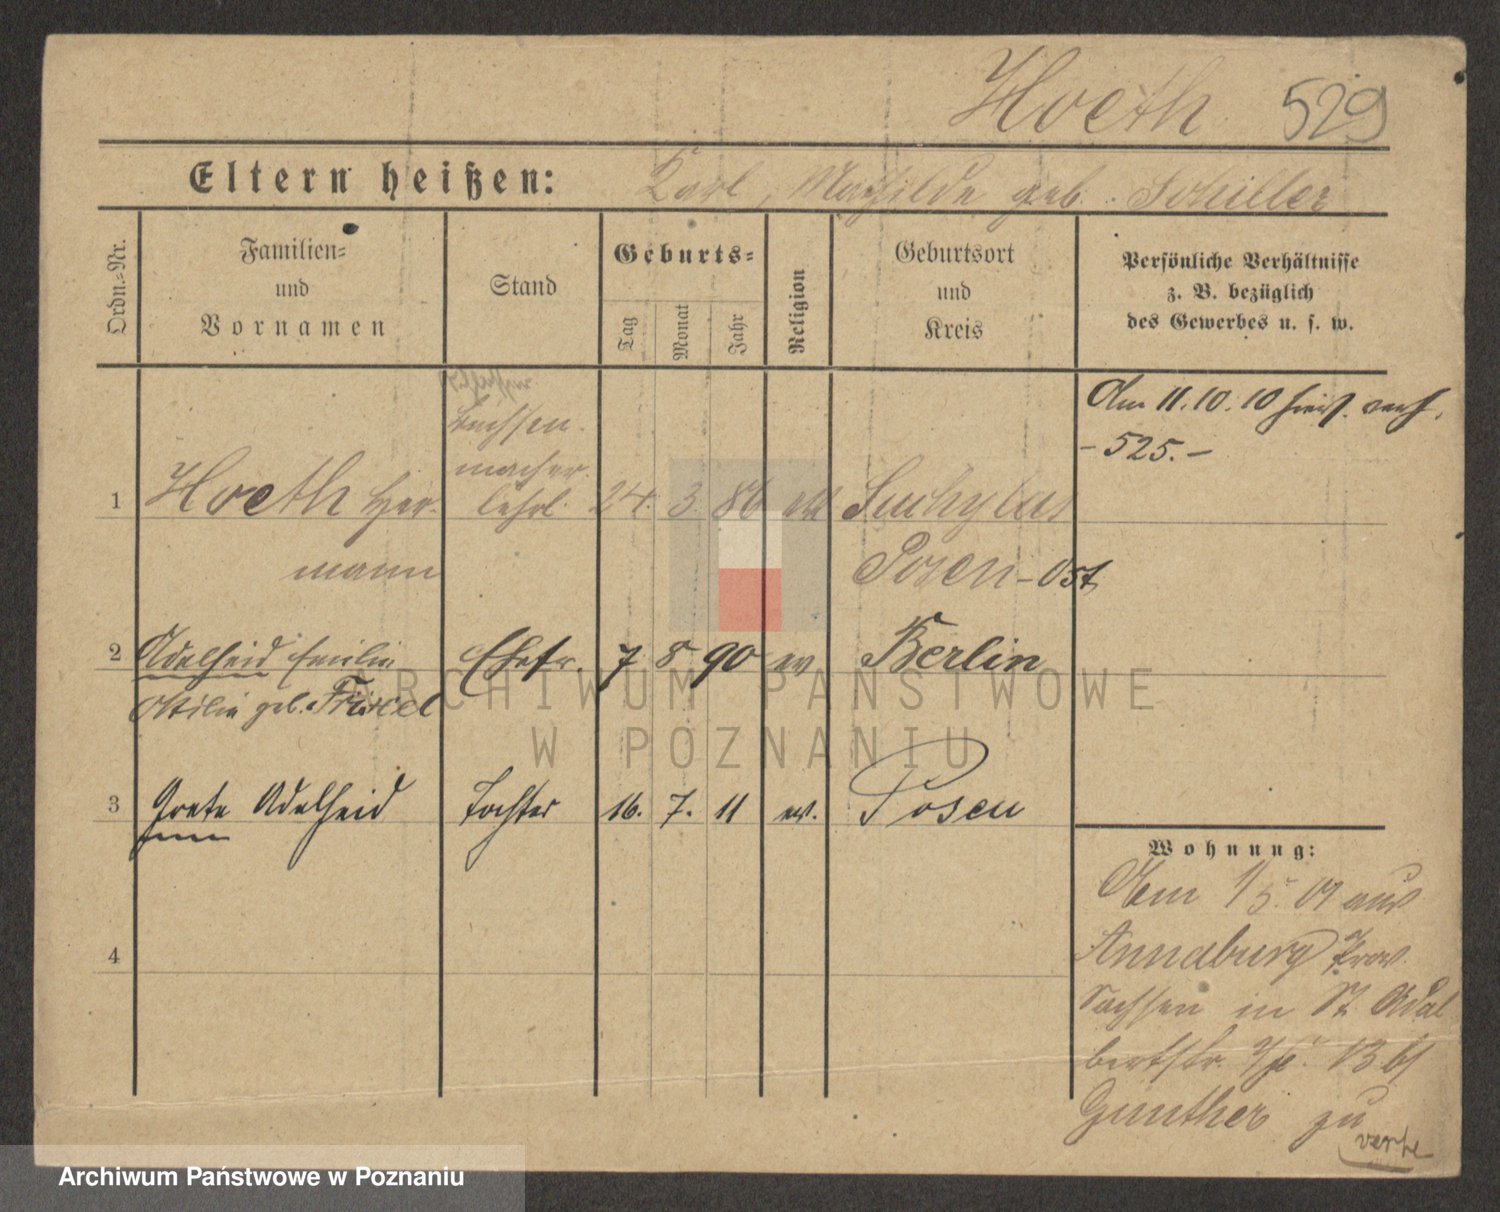 Hoeth 529
Eltern heißen: Karl, Mathilde geb. Schiller
Ordn.=Nr.
Familien=
und
Vornamen
Stand
Geburts=
Tag
Monat
Jahr
Religion
Geburtsort
und
Kreis
Persönliche Verhältnisse
z. B. bezüglich
des Gewerbes u. s. w.
Am 11.10.10
-525.-
Büchsen-
macher
1 Hoeth Her- lehrl. 24. 3. 86
mann Posen-Ost
2 Adelheid Emilie Ehefr. 7 8 90 ev Berlin
Ottilie geb.
3 Grete Adelheid Tochter 16. 7. 11 ev. Posen
4
Wohnung:
Am 1/5. 01 aus
Annaburg Prov.
Sachsen in St. Adal
bertstr. 13 b/
Günther zu
ARCHIWUM PAŃSTWOWE
W POZNANIU
Archiwum Państwowe w Poznaniu